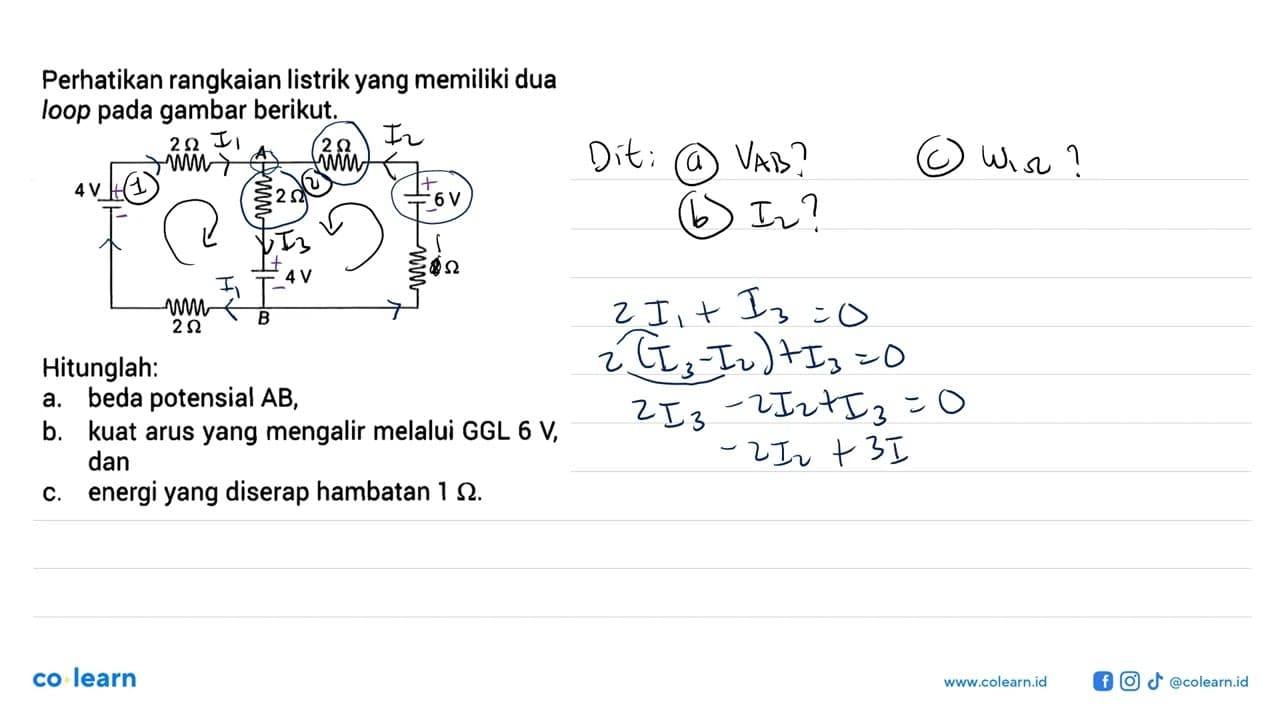 Perhatikan rangkaian listrik yang memiliki dua
loop pada gambar berikut.
2 Ω I₁ A 2 Ω I₂
4 V + 1 2 Ω 2 + 6 V
- -
I₃
+ 4 V Ω
I₁ -
2 Ω B
Hitunglah:
a. beda potensial AB,
b. kuat arus yang mengalir melalui GGL 6 V,
dan
c. energi yang diserap hambatan 1 Ω.
Dit: a V_AB? c W₁Ω?
b I₂?
2I₁ + I₃ = 0
2(I₃-I₂)+I₃=0
2I₃ -2I₂+I₃ = 0
-2I₂ + 3I
co learn
www.colearn.id @colearn.id